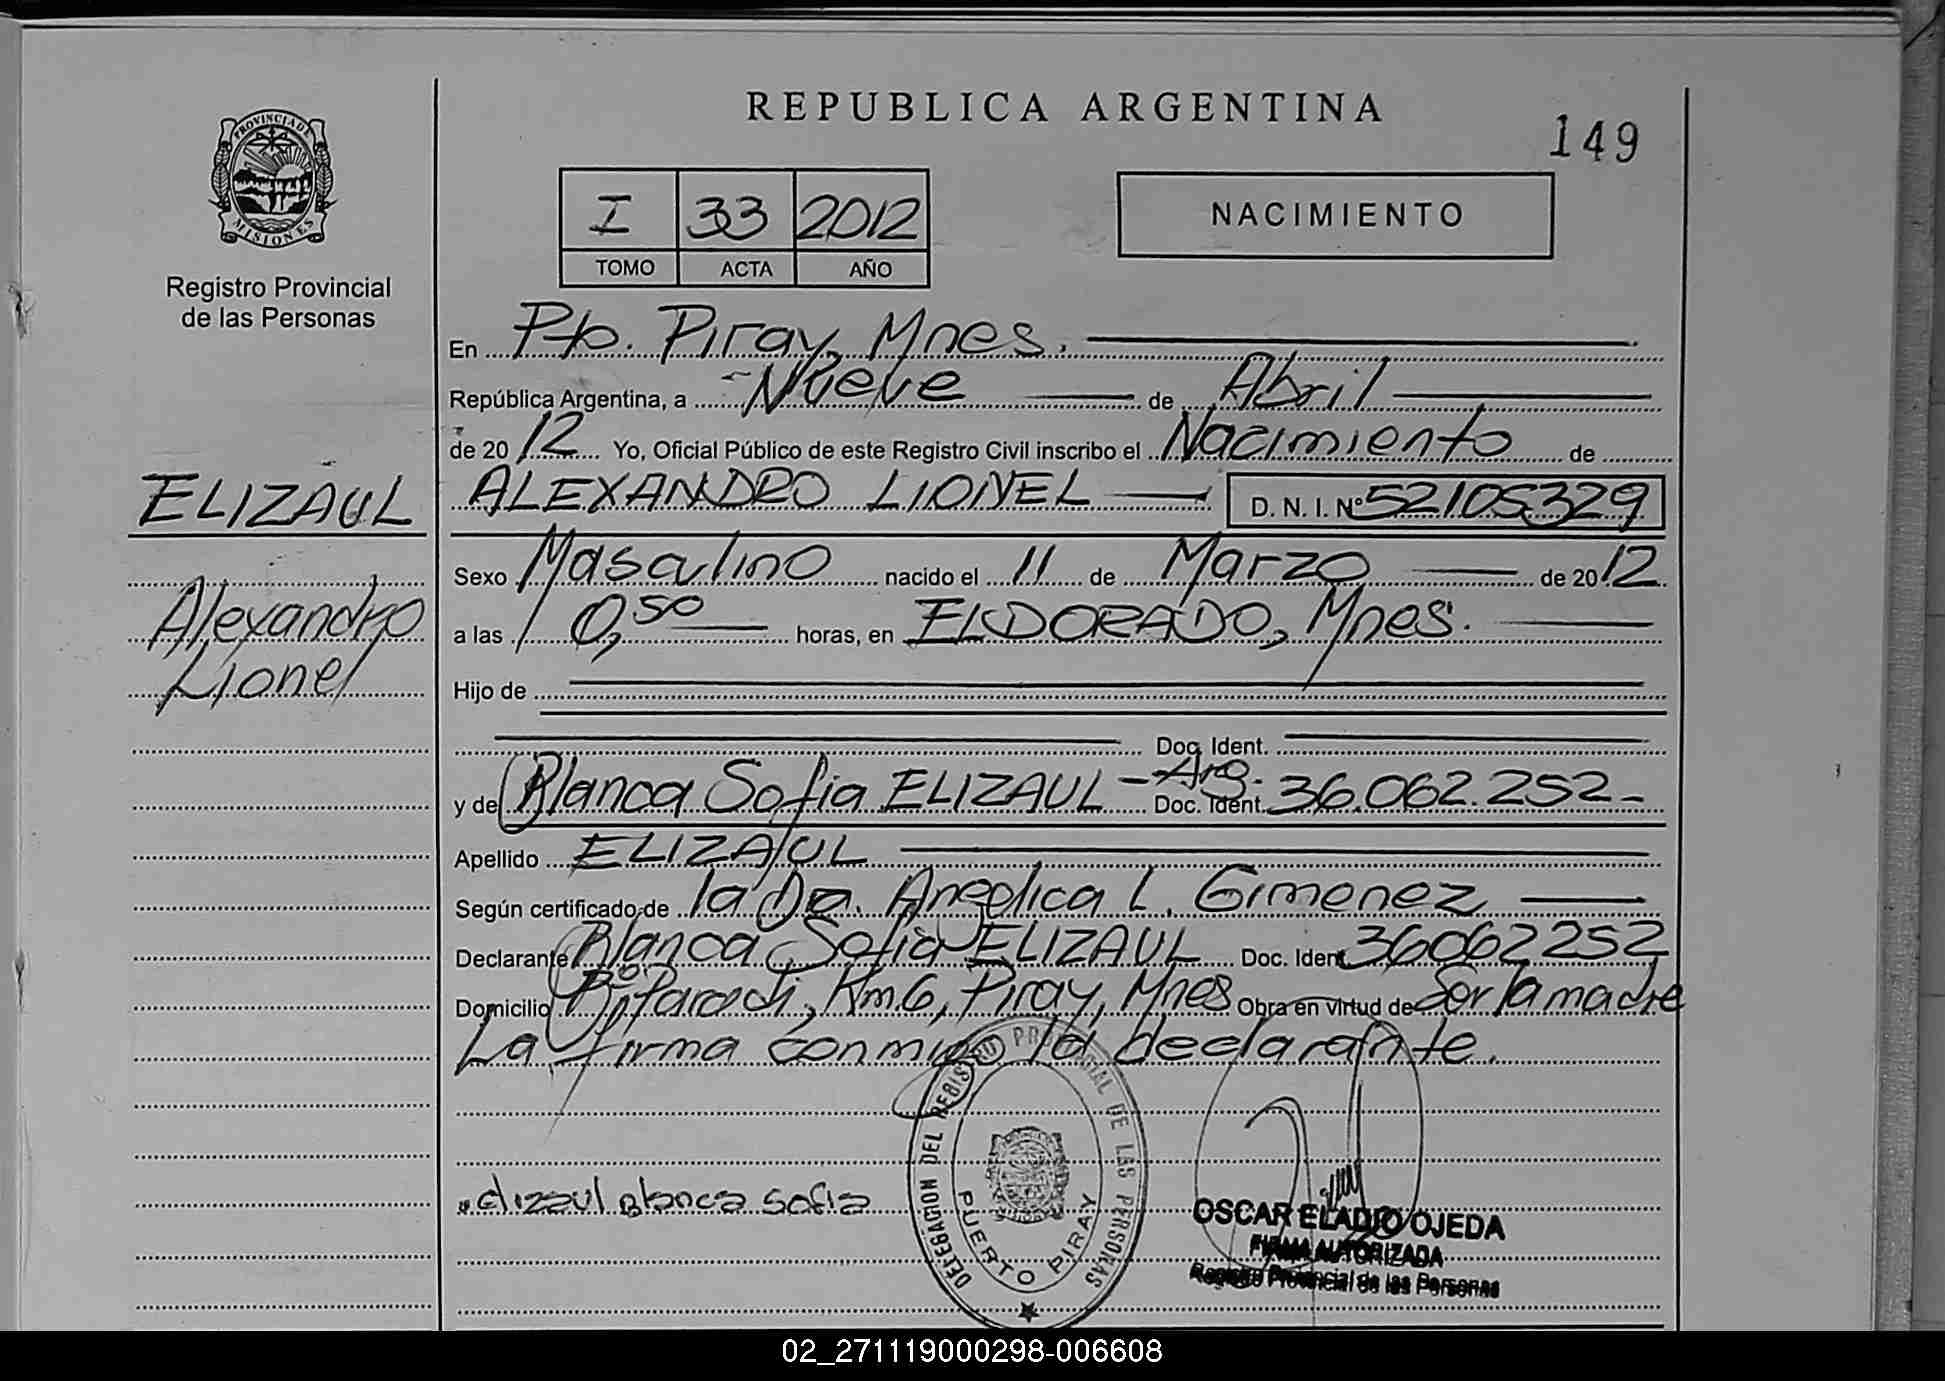 REPUBLICA ARGENTINA
149
PROVINCIA DE
MISIONES
Registro Provincial
de las Personas
I 33 2012
TOMO ACTA AÑO
NACIMIENTO
En Pto. Piray, Mnes.
República Argentina, a Nueve de Abril
de 20 12 Yo, Oficial Público de este Registro Civil inscribo el Nacimiento de
ELIZAUL
ALEXANDRO LIONEL D. N. I. Nº 52105329
Sexo Masculino nacido el 11 de Marzo de 20 12
Alexandro
Lionel
a las 10,50 horas, en ELDORADO, Mnes.
Hijo de
Doc. Ident.
y de Blanca Sofia ELIZAUL - Arg. Doc. Ident. 36.062.252-
Apellido ELIZAUL
Según certificado de la Dra. Angelica L. Gimenez
Declarante Blanca Sofia ELIZAUL Doc. Ident. 36062252
Domicilio Bº Parodi, Km. 6, Piray, Mnes Obra en virtud de Ser la madre
La firma conmigo la declarante.
DELEGACION DEL REGISTRO PROVINCIAL DE LAS PERSONAS
PUERTO PIRAY
elizaul blanca sofia
OSCAR ELADIO OJEDA
FIRMA AUTORIZADA
Registro Provincial de las Personas
02_271119000298-006608